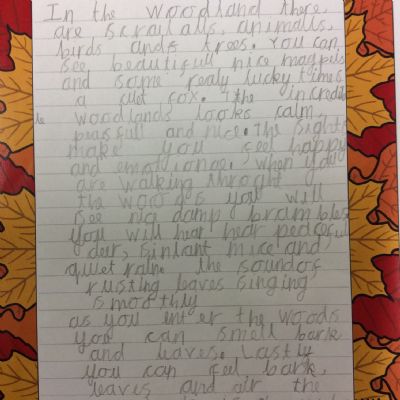 In the woodland there
are scrailails, animalls,
birds ands trees. you can
see beautifull nice magpies
and some realy lucky times
a quiet fox. The incredible
woodlands looks calm,
peasfull and nice. The sights
make you feel happy
and emotionge. when you
are walking throght
the woods you will
see nice damp brambles
you will hear hear peaceful
deer, sinlant mice and
quiet rain. the sound of
rusting leaves singing
smoothly
as you enter the woods
you can smell bark
and leaves. Lastly
you can feel bark,
leaves and air the